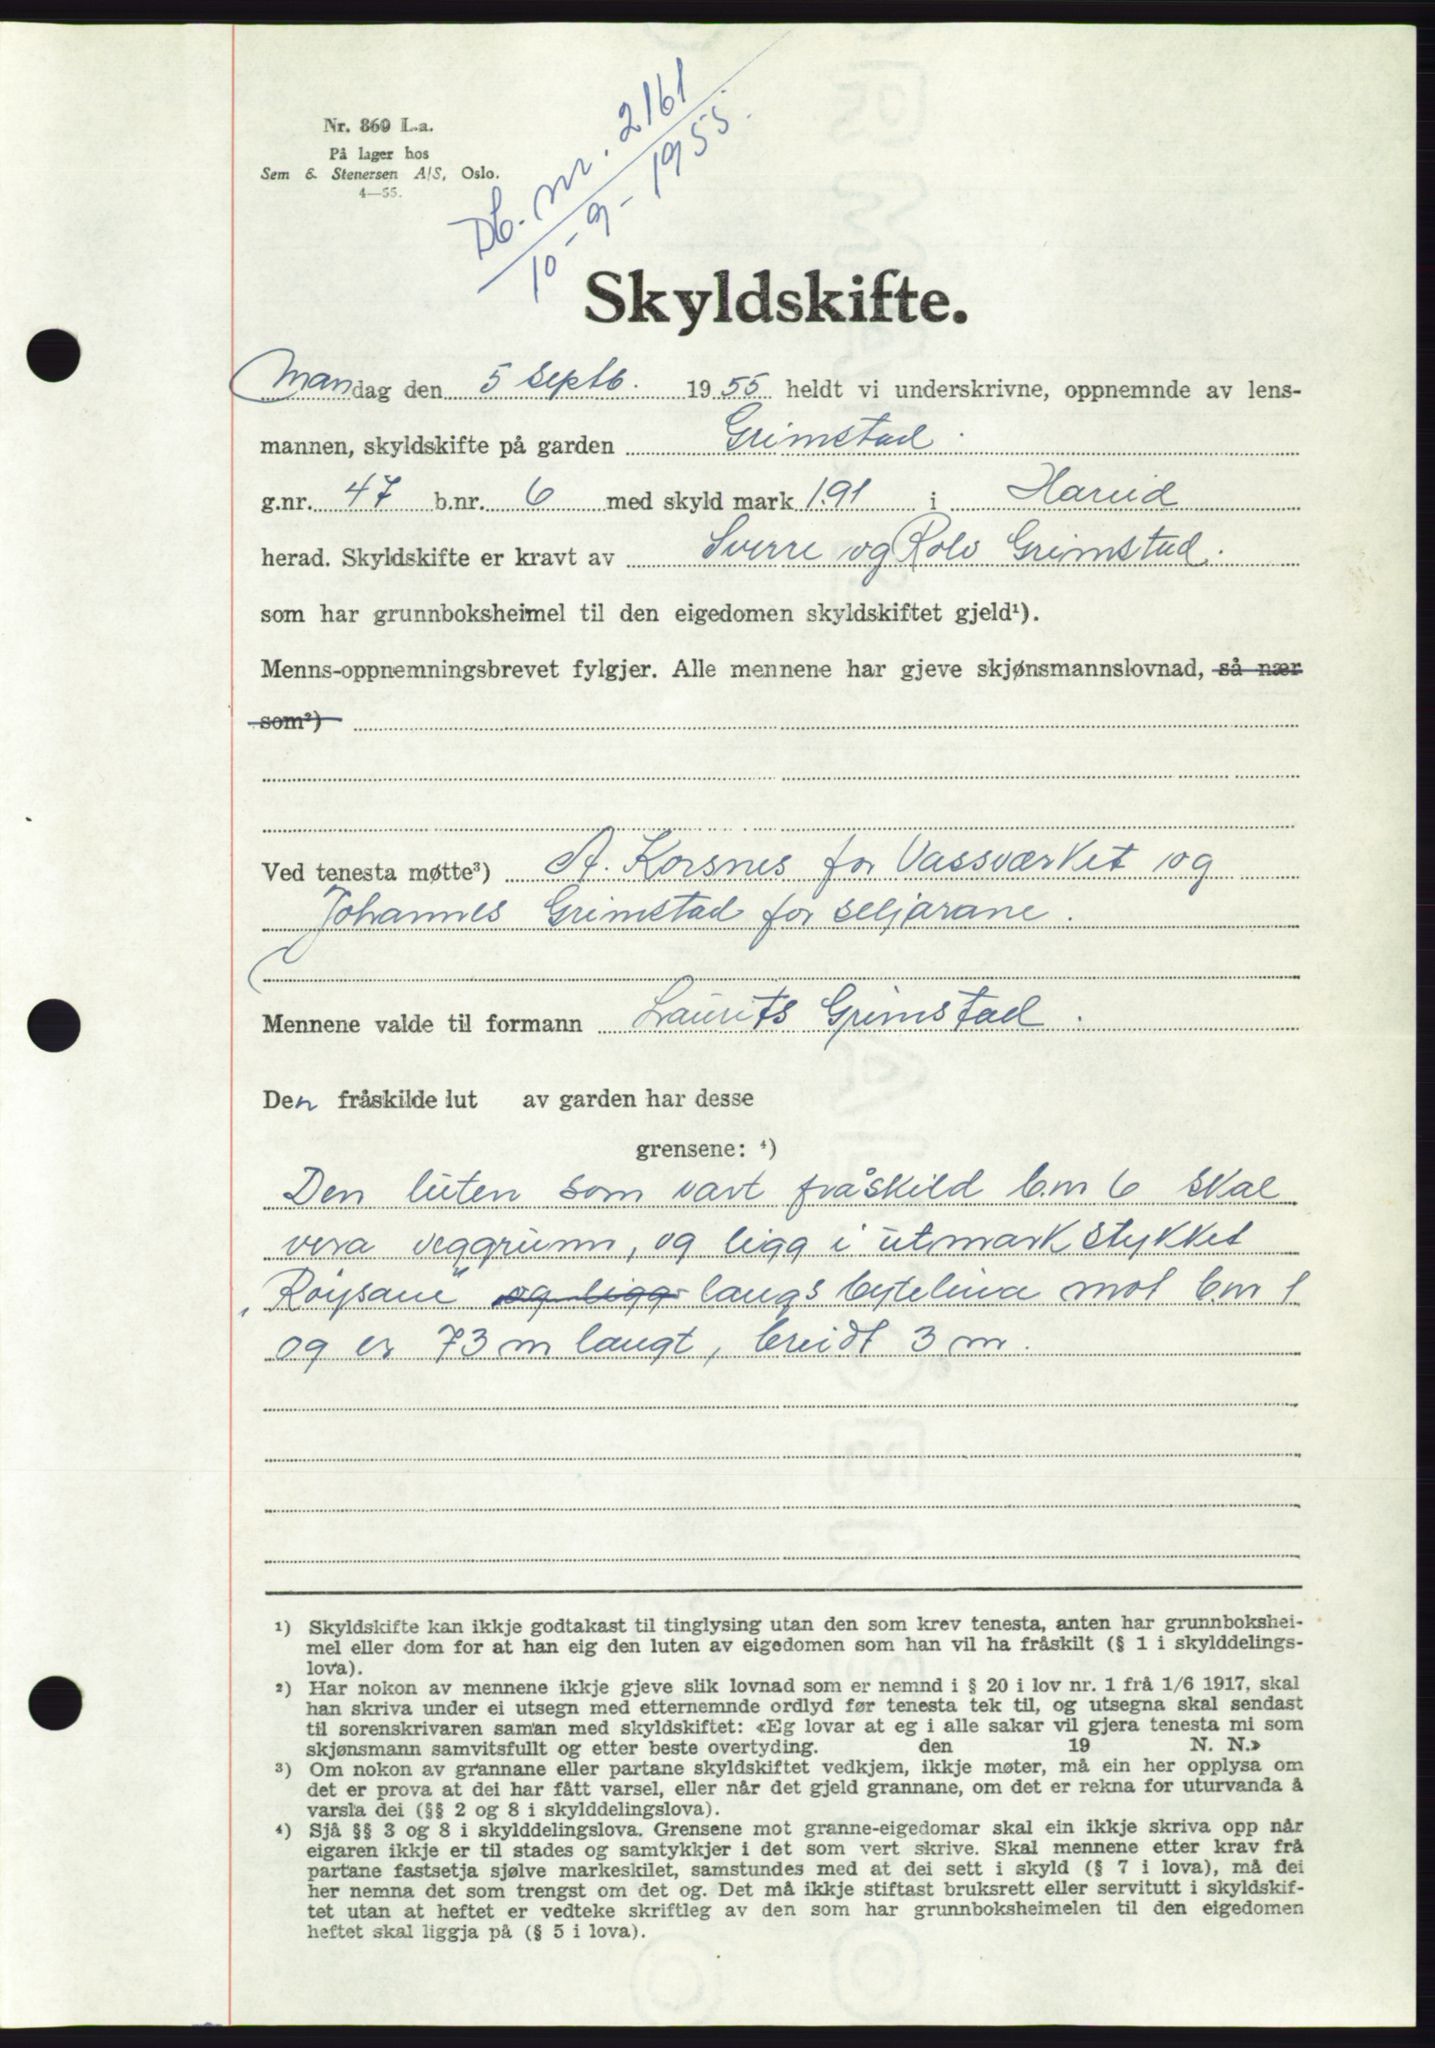 Nr. 860 L.a.
På lager hos
Sem & Stenersen A/S, Oslo.
4—55.
Db. nr. 2161
10-9-1955.
Skyldskifte.
Mandag den 5 septb. 1955 heldt vi underskrivne, oppnemnde av lens-
mannen, skyldskifte på garden Grimstad.
g.nr. 47 b.nr. 6 med skyld mark 1.91 i Hareid
herad. Skyldskifte er kravt av Sverre og Rolv Grimstad.
som har grunnboksheimel til den eigedomen skyldskiftet gjeld¹).
Menns-oppnemningsbrevet fylgjer. Alle mennene har gjeve skjønsmannslovnad, så nær
som²)
Ved tenesta møtte³) A. Korsnes for Vassværket og
Johannes Grimstad for seljarane.
Mennene valde til formann Laurits Grimstad.
Den fråskilde lut av garden har desse
grensene: ⁴)
Den luten som vart fråskild b.nr 6 skal
vera veggrunn, og ligg i utmarkstykket
"Røysane" og ligg langs bytelina mot b.nr 1
og er 73 m langt, breidt 3 m.
¹) Skyldskifte kan ikkje godtakast til tinglysing utan den som krev tenesta, anten har grunnbokshei-
mel eller dom for at han eig den luten av eigedomen som han vil ha fråskilt (§ 1 i skylddelings-
lova).
²) Har nokon av mennene ikkje gjeve slik lovnad som er nemnd i § 20 i lov nr. 1 frå 1/6 1917, skal
han skriva under ei utsegn med etternemnde ordlyd før tenesta tek til, og utsegna skal sendast
til sorenskrivaren saman med skyldskiftet: «Eg lovar at eg i alle sakar vil gjera tenesta mi som
skjønsmann samvitsfullt og etter beste overtyding. den 19 N. N.»
³) Om nokon av grannane eller partane skyldskiftet vedkjem, ikkje møter, må ein her opplysa om
det er prova at dei har fått varsel, eller når det gjeld grannane, om det er rekna for uturvanda å
varsla dei (§§ 2 og 8 i skylddelingslova).
⁴) Sjå §§ 3 og 8 i skylddelingslova. Grensene mot granne-eigedomar skal ein ikkje skriva opp når
eigaren ikkje er til stades og samtykkjer i det som vert skrive. Skal mennene etter krav frå
partane fastsetja sjølve markeskilet, samstundes med at dei sett i skyld (§ 7 i lova), må dei
her nemna det som trengst om det og. Det må ikkje stiftast bruksrett eller servitutt i skyldskif-
tet utan at heftet er vedteke skriftleg av den som har grunnboksheimelen til den eigedomen
heftet skal liggja på (§ 5 i lova).